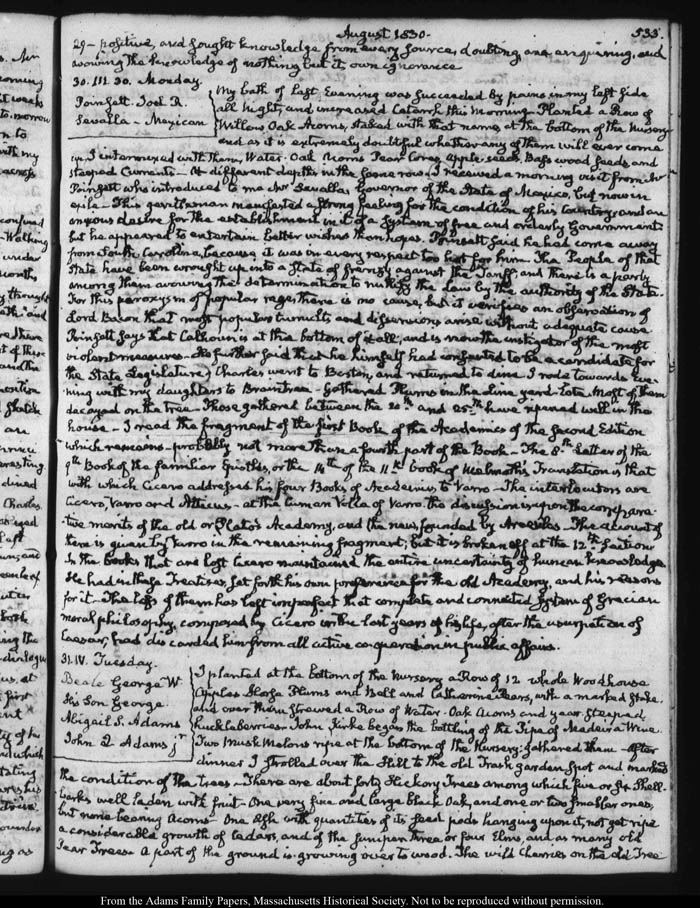 August 1830.
535.
29 - positive, and sought knowledge from every source, doubting, and enquiring, and
avowing the knowledge of nothing but its own ignorance
30. III. 30. Monday.
Poinsett. Joel R.
Zavalla - Mexican
My bath of last Evening was succeeded by pains in my left side
all Night, and increased Catarrh this Morning - Planted a Row of
Willow Oak Acorns, staked with that name, at the bottom of the Nursery
and as it is extremely doubtful whether any of them will ever come
up, I intermixed with them, Water-Oak Acorns Pear Cores, apple-seeds, Bass wood seeds, and
steeped Currants - At different depths in the same row. I received a morning visit from Mr
Poinsett who introduced to me Mr Zavalla, Governor of the State of Mexico, but now in
exile - This gentleman manifested a strong feeling for the condition of his Country, and an
anxious desire for the establishment in it of a system of free and orderly Government:
but he appeared to entertain better wishes than hopes. Poinsett said he had come away
from South Carolina, because it was in every respect too hot for him. The People of that
State have been wrought up into a State of frenzy against the Tariff, and there is a party
among them avowing the determination to nullify the Law by the authority of the State.
For this paroxysm of popular rage there is no cause, but it verifies an observation of
Lord Bacon that most popular tumults and dissensions arise without adequate cause.
Poinsett says that Calhoun is at the bottom of it all, and is now the instigator of the most
violent measures - He further said that he himself had consented to be a candidate for
the State Legislature, Charles went to Boston, and returned to dine. I rode towards Eve-
ning with my daughters to Braintree - Gathered Plums in the Lime yard - Lota. Most of them
decayed on the tree - Those gathered between the 20th and 25th have ripened well in the
house - I read the fragment of the first Book of the Academics of the second Edition
which remains - probably not more than a fourth part of the Book - The 8th Letter of the
9th Book of the familiar Epistles, or the 14th of the 11th book of Melmoth's Translation is that
with which Cicero addresses his four Books of Academics, to Varro - The interlocutors are
Cicero, Varro and Atticus - at the Cuman Villa of Varro. The discussion is upon the compara-
tive merits of the old or Plato's Academy, and the new, founded by Arcesilas - The account of
them is given by Varro in the remaining fragment; but it is broken off at the 12th Section
In the books that are lost Cicero maintained the entire uncertainty of human knowledge.
He had in these Treatises, set forth his own preference for the old Academy, and his reasons
for it. The loss of them has left imperfect that complete and connected system of Grecian
moral philosophy, composed by Cicero in the last years of his life, after the usurpation of
Caesar, had discarded him from all active co-operation in public affairs.
31. IV. Tuesday.
Beale George W
His Son George.
Abigail S. Adams
John Q Adams jr
I planted at the bottom of the Nursery a Row of 12 whole Woodhouse
Apples Large Plums and Bell and Catherine Pears, with a marked stake,
and over them strewed a Row of Water-Oak Acorns and year steeped
huckleberries. John Kirke began the bottling of the Pipe of Madeira Wine.
Two Musk Melons ripe at the bottom of the Nursery; gathered them - After
dinner I strolled over the Hill to the old Trask garden spot and marked
the condition of the trees - There are about forty Hickory Trees among which five or six Shell-
barks well laden with fruit - One very fine and large black Oak, and one or two smaller ones,
but none bearing Acorns - One Ash with quantities of its seed pods hanging upon it, not yet ripe
a considerable growth of Cedars, and of the Juniper, three or four Elms, and as many old
Pear Trees - A part of the ground is growing over to wood. The wild Cherries on the old Tree
From the Adams Family Papers, Massachusetts Historical Society. Not to be reproduced without permission.